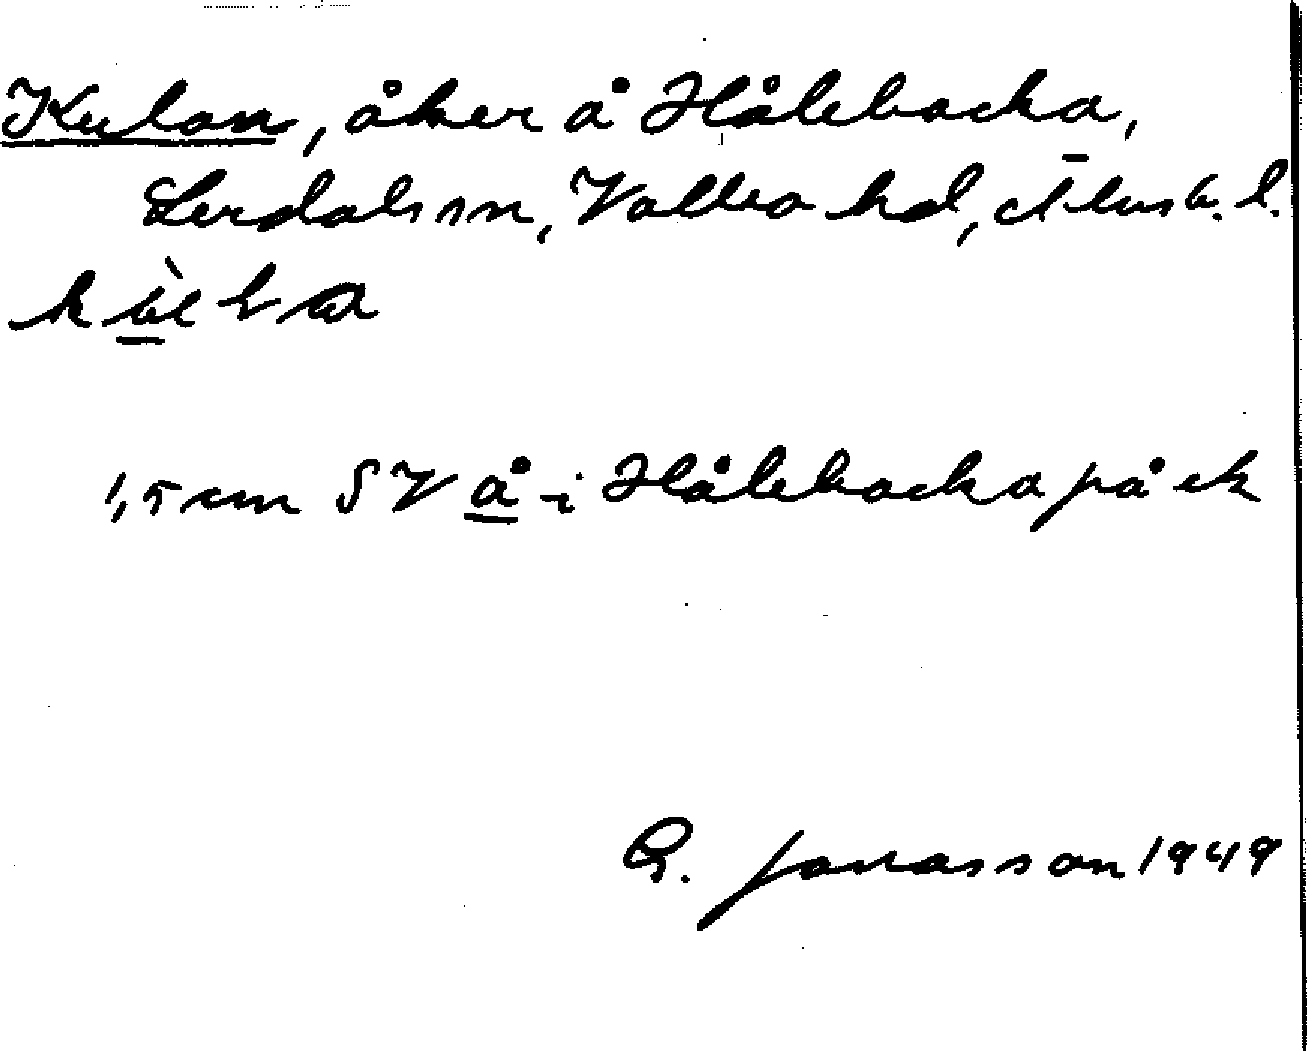 Kulan, åker å Hålebacka,
Lerdals sn, Valbo hd, Älvsb. l.
1,5 cm SV å i Hålebacka på ek
G. Jonasson 1949